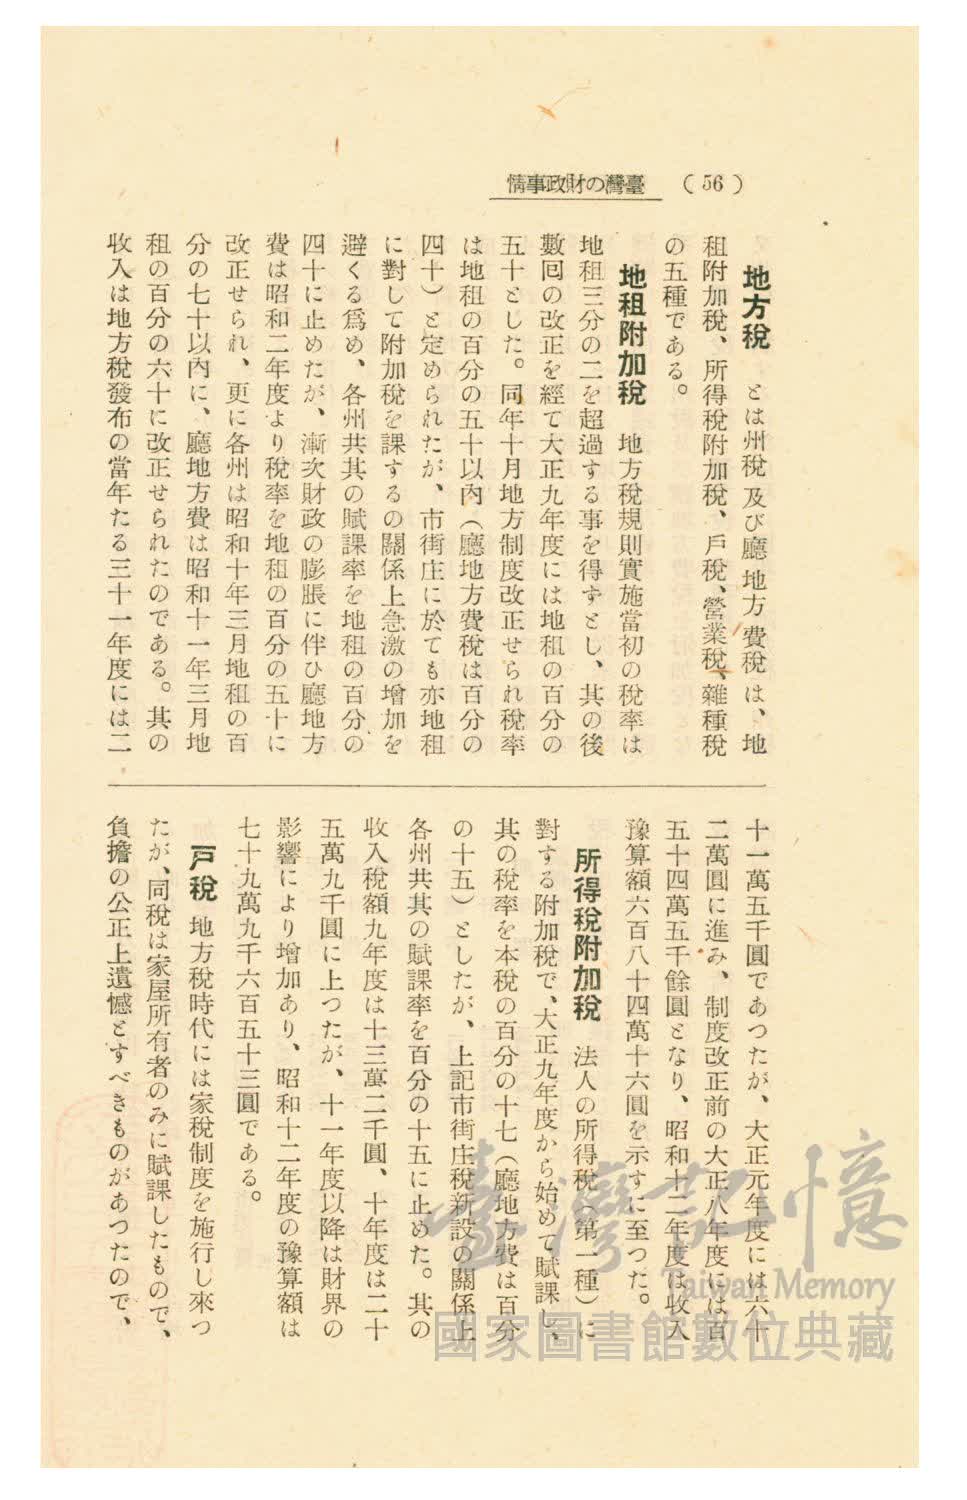 (56)
情事政財の灣臺
地方稅　とは州稅及び廳地方費稅は、地
租附加稅、所得稅附加稅、戶稅、營業稅、雜種稅
の五種である。
地租附加稅　地方稅規則實施當初の稅率は
地租三分の二を超過する事を得ずとし、其の後
數回の改正を經て大正九年度には地租の百分の
五十とした。同年十月地方制度改正せられ稅率
は地租の百分の五十以內（廳地方費稅は百分の
四十）と定められたが、市街庄に於ても亦地租
に對して附加稅を課するの關係上急激の增加を
避くる爲め、各州共其の賦課率を地租の百分の
四十に止めたが、漸次財政の膨脹に伴ひ廳地方
費は昭和二年度より稅率を地租の百分の五十に
改正せられ、更に各州は昭和十年三月地租の百
分の七十以內に、廳地方費は昭和十一年三月地
租の百分の六十に改正せられたのである。其の
收入は地方稅發布の當年たる三十一年度には二
十一萬五千圓であつたが、大正元年度には六十
二萬圓に進み、制度改正前の大正八年度には百
五十四萬五千餘圓となり、昭和十二年度は收入
豫算額六百八十四萬十六圓を示すに至つた。
所得稅附加稅　法人の所得稅（第一種）に
對する附加稅で、大正九年度から始めて賦課し、
其の稅率を本稅の百分の十七（廳地方費は百分
の十五）としたが、上記市街庄稅新設の關係上
各州共其の賦課率を百分の十五に止めた。其の
收入稅額九年度は十三萬二千圓、十年度は二十
五萬九千圓に上つたが、十一年度以降は財界の
影響により增加あり、昭和十二年度の豫算額は
七十九萬九千六百五十三圓である。
戶稅　地方稅時代には家稅制度を施行し來つ
たが、同稅は家屋所有者のみに賦課したもので、
負擔の公正上遺憾とすべきものがあつたので、
臺灣記憶
Taiwan Memory
國家圖書館數位典藏